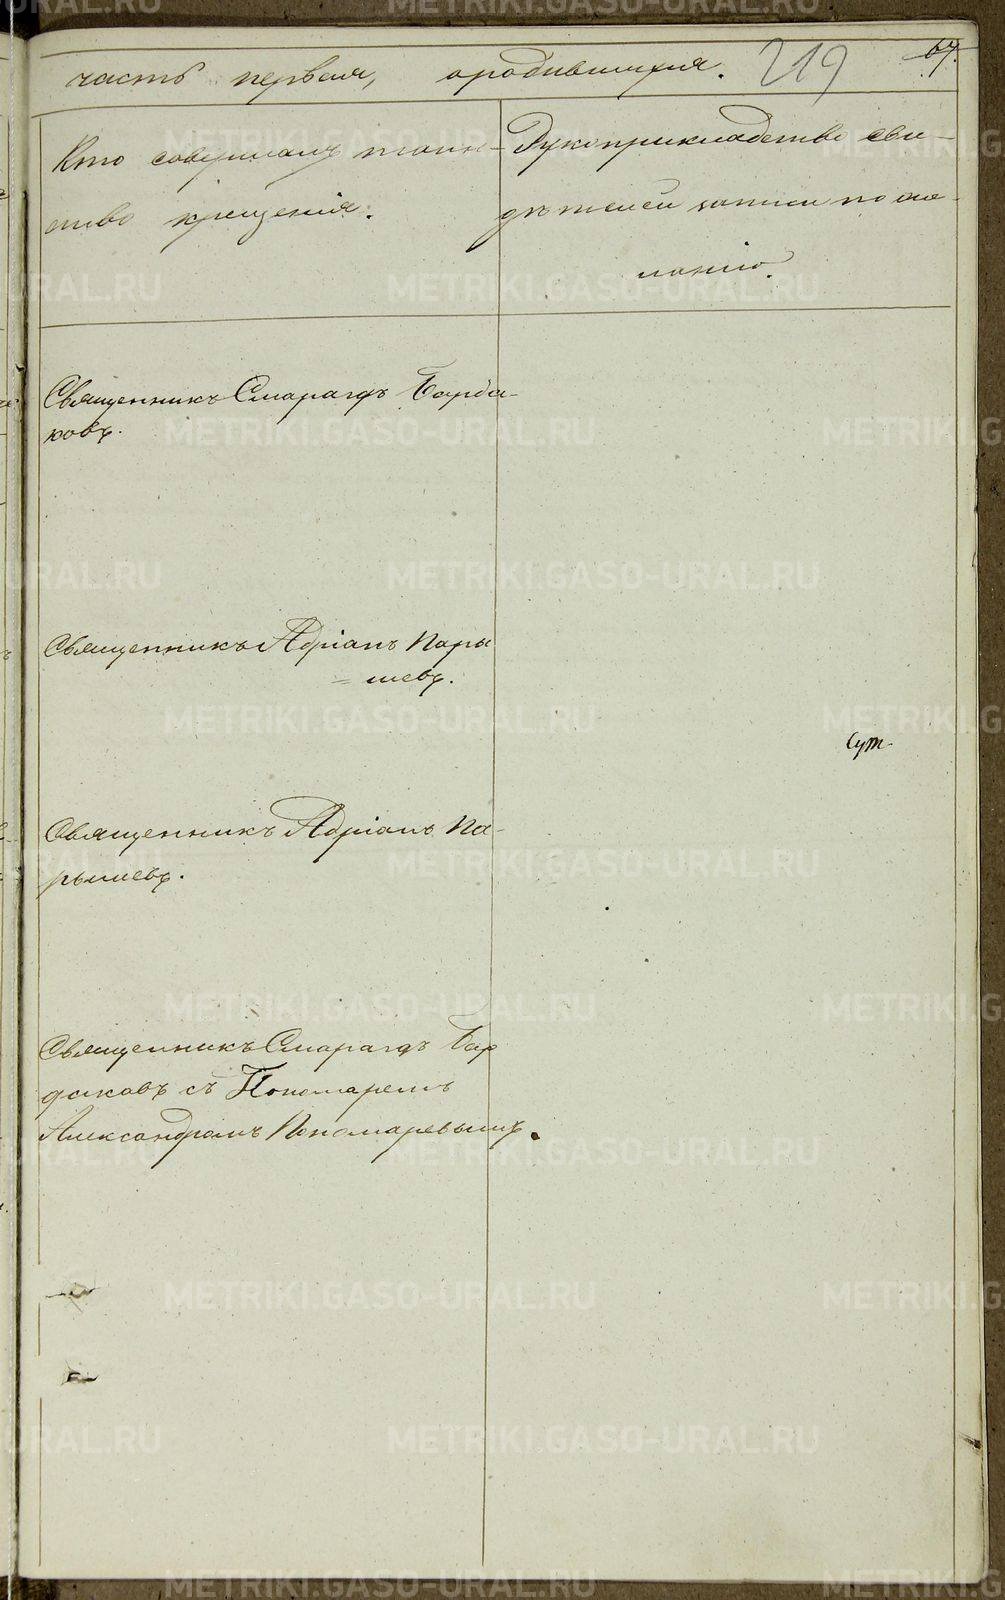 часть первая, ородившихся. 219 67.
Кто совершалъ таин-
ство крещенія.
Рукоприкладство сви-
дѣтелей записи по же-
ланію.
Священникъ Смарагдъ Барда-
ковъ.
Священникъ Адріанъ Пары
= шевъ.
Сут.
Священникъ Адріанъ Па-
рышевъ.
Священникъ Смарагдъ Бар
даковъ съ Пономаремъ
Александромъ Пономаревымъ.
METRIKI.GASO-URAL.RU